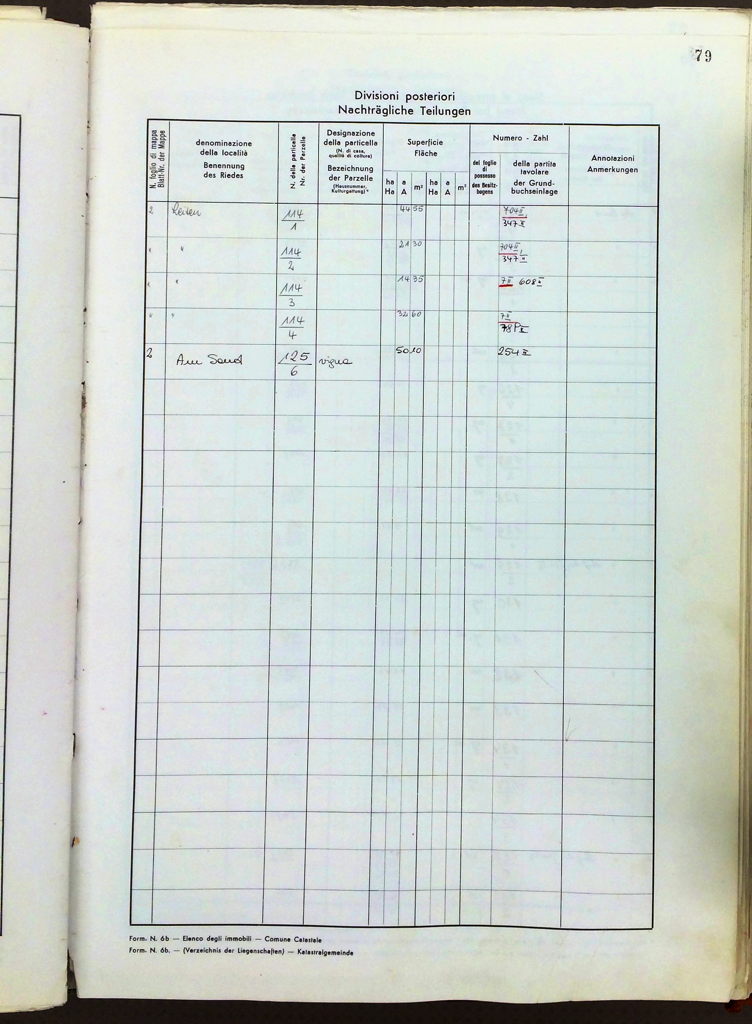 79
Divisioni posteriori
Nachträgliche Teilungen
N. foglio di mappa
Blatt-Nr. der Mappe
denominazione
della località
Benennung
des Riedes
N. della particella
Nr. der Parzelle
Designazione
della particella
(N. di casa,
qualità di coltura)
Bezeichnung
der Parzelle
(Hausnummer,
Kulturgattung)
Superficie
Fläche
ha
Ha
a
A
m²
ha
Ha
a
A
m²
Numero - Zahl
del foglio
di
possesso
des Besitz-
bogens
della partita
tavolare
der Grund-
buchseinlage
Annotazioni
Anmerkungen
2 Leiten 114/1 44 55 704 II
347 II
" " 114/2 21 30 704 II
347 II
" " 114/3 14 35 7 II 608 II
" " 114/4 32 60 7 II
2 Am Sand 125/6 vigna 50 10 254 II
Form. N. 6b — Elenco degli immobili — Comune Catastale
Form. N. 6b. — (Verzeichnis der Liegenschaften) — Katastralgemeinde